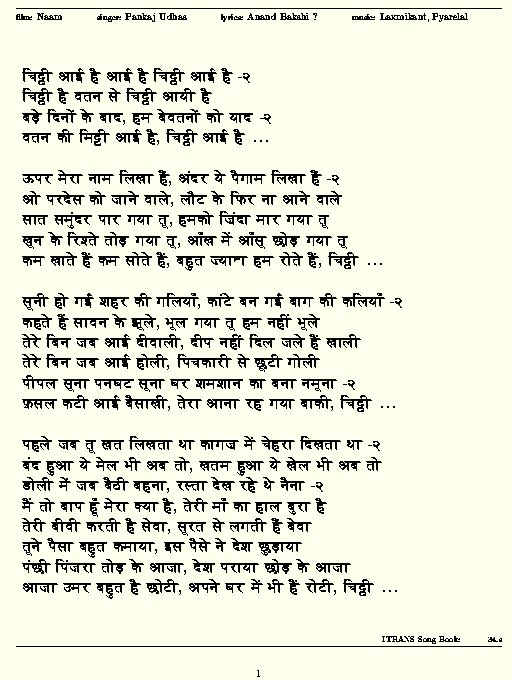 film: Naam singer: Pankaj Udhas lyrics: Anand Bakshi ? music: Laxmikant, Pyarelal
चिट्ठी आई है आई है चिट्ठी आई है -२
चिट्ठी है वतन से चिट्ठी आयी है
बड़े दिनों के बाद, हम बेवतनों को याद -२
वतन की मिट्टी आई है, चिट्ठी आई है ...
ऊपर मेरा नाम लिखा हैं, अंदर ये पैगाम लिखा हैं -२
ओ परदेस को जाने वाले, लौट के फिर ना आने वाले
सात समुंदर पार गया तू, हमको ज़िंदा मार गया तू
खून के रिश्ते तोड़ गया तू, आँख में आँसू छोड़ गया तू
कम खाते हैं कम सोते हैं, बहुत ज्यादा हम रोते हैं, चिट्ठी ...
सूनी हो गईं शहर की गलियाँ, कांटे बन गईं बाग की कलियाँ -२
कहते हैं सावन के झूले, भूल गया तू हम नहीं भूले
तेरे बिन जब आई दीवाली, दीप नहीं दिल जले हैं खाली
तेरे बिन जब आई होली, पिचकारी से छूटी गोली
पीपल सूना पनघट सूना घर शमशान का बना नमूना -२
फ़सल कटी आई बैसाखी, तेरा आना रह गया बाकी, चिट्ठी ...
पहले जब तू ख़त लिखता था कागज में चेहरा दिखता था -२
बंद हुआ ये मेल भी अब तो, खतम हुआ ये खेल भी अब तो
डोली में जब बैठी बहना, रस्ता देख रहे थे नैना -२
मैं तो बाप हूँ मेरा क्या है, तेरी माँ का हाल बुरा है
तेरी बीवी करती है सेवा, सूरत से लगती हैं बेवा
तूने पैसा बहुत कमाया, इस पैसे ने देश छुड़ाया
पंछी पिंजरा तोड़ के आजा, देश पराया छोड़ के आजा
आजा उमर बहुत है छोटी, अपने घर में भी हैं रोटी, चिट्ठी ...
ITRANS Song Book:
1